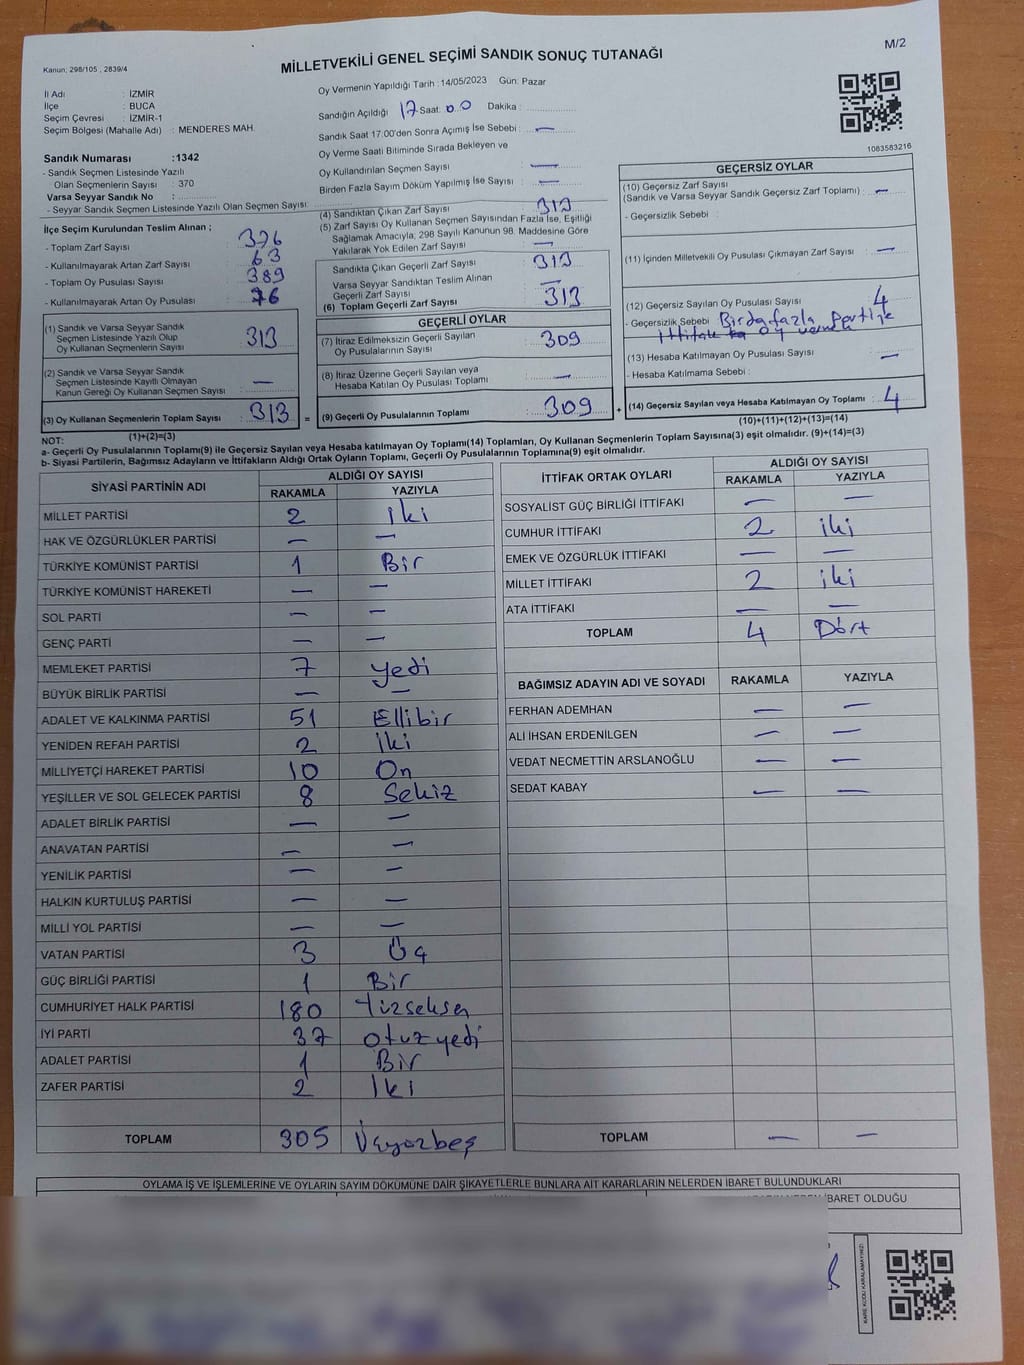 Kanun; 298/105 , 2839/4
MİLLETVEKİLİ GENEL SEÇİMİ SANDIK SONUÇ TUTANAĞI
M/2
İl Adı : İZMİR
İlçe : BUCA
Seçim Çevresi : İZMİR-1
Seçim Bölgesi (Mahalle Adı) : MENDERES MAH.
Sandık Numarası :1342
- Sandık Seçmen Listesinde Yazılı
Olan Seçmenlerin Sayısı : 370
Varsa Seyyar Sandık No :
- Seyyar Sandık Seçmen Listesinde Yazılı Olan Seçmen Sayısı:
Oy Vermenin Yapıldığı Tarih :14/05/2023 Gün: Pazar
Sandığın Açıldığı 17 Saat: 00 Dakika :
Sandık Saat 17.00'den Sonra Açımış İse Sebebi : —
Oy Verme Saati Bitiminde Sırada Bekleyen ve
Oy Kullandırılan Seçmen Sayısı —
Birden Fazla Sayım Döküm Yapılmış İse Sayısı : —
1083583216
İlçe Seçim Kurulundan Teslim Alınan ;
- Toplam Zarf Sayısı : 376
- Kullanılmayarak Artan Zarf Sayısı : 63
- Toplam Oy Pusulası Sayısı : 389
- Kullanılmayarak Artan Oy Pusulası : 76
(1) Sandık ve Varsa Seyyar Sandık
Seçmen Listesinde Yazılı Olup
Oy Kullanan Seçmenlerin Sayısı : 313
(2) Sandık ve Varsa Seyyar Sandık
Seçmen Listesinde Kayıtlı Olmayan
Kanun Gereği Oy Kullanan Seçmen Sayısı : —
(3) Oy Kullanan Seçmenlerin Toplam Sayısı : 313 =
(1)+(2)=(3)
(4) Sandıktan Çıkan Zarf Sayısı : 313
(5) Zarf Sayısı Oy Kullanan Seçmen Sayısından Fazla İse, Eşitliği
Sağlamak Amacıyla; 298 Sayılı Kanunun 98. Maddesine Göre
Yakılarak Yok Edilen Zarf Sayısı : —
Sandıkta Çıkan Geçerli Zarf Sayısı : 313
Varsa Seyyar Sandıktan Teslim Alınan
Geçerli Zarf Sayısı : —
(6) Toplam Geçerli Zarf Sayısı : 313
GEÇERLİ OYLAR
(7) İtiraz Edilmeksizin Geçerli Sayılan
Oy Pusulalarının Sayısı : 309
(8) İtiraz Üzerine Geçerli Sayılan veya
Hesaba Katılan Oy Pusulası Toplamı : —
(9) Geçerli Oy Pusulalarının Toplamı : 309 +
GEÇERSİZ OYLAR
(10) Geçersiz Zarf Sayısı
(Sandık ve Varsa Seyyar Sandık Geçersiz Zarf Toplamı) : —
- Geçersizlik Sebebi :
(11) İçinden Milletvekili Oy Pusulası Çıkmayan Zarf Sayısı : —
(12) Geçersiz Sayılan Oy Pusulası Sayısı : 4
- Geçersizlik Sebebi Birdafazla
(13) Hesaba Katılmayan Oy Pusulası Sayısı : —
- Hesaba Katılmama Sebebi :
(14) Geçersiz Sayılan veya Hesaba Katılmayan Oy Toplamı : 4
(10)+(11)+(12)+(13)=(14)
NOT:
a- Geçerli Oy Pusulalarının Toplamı(9) ile Geçersiz Sayılan veya Hesaba katılmayan Oy Toplamı(14) Toplamları, Oy Kullanan Seçmenlerin Toplam Sayısına(3) eşit olmalıdır. (9)+(14)=(3)
b- Siyasi Partilerin, Bağımsız Adayların ve İttifakların Aldığı Ortak Oyların Toplamı, Geçerli Oy Pusulalarının Toplamına(9) eşit olmalıdır.
SİYASİ PARTİNİN ADI ALDIĞI OY SAYISI
RAKAMLA YAZIYLA
MİLLET PARTİSİ 2 iki
HAK VE ÖZGÜRLÜKLER PARTİSİ — —
TÜRKİYE KOMÜNİST PARTİSİ 1 Bir
TÜRKİYE KOMÜNİST HAREKETİ — —
SOL PARTİ — —
GENÇ PARTİ — —
MEMLEKET PARTİSİ 7 yedi
BÜYÜK BİRLİK PARTİSİ — —
ADALET VE KALKINMA PARTİSİ 51 Ellibir
YENİDEN REFAH PARTİSİ 2 iki
MİLLİYETÇİ HAREKET PARTİSİ 10 On
YEŞİLLER VE SOL GELECEK PARTİSİ 8 Sekiz
ADALET BİRLİK PARTİSİ — —
ANAVATAN PARTİSİ — —
YENİLİK PARTİSİ — —
HALKIN KURTULUŞ PARTİSİ — —
MİLLİ YOL PARTİSİ — —
VATAN PARTİSİ 3 Üç
GÜÇ BİRLİĞİ PARTİSİ 1 Bir
CUMHURİYET HALK PARTİSİ 180 Yüzseksen
İYİ PARTİ 37 otuzyedi
ADALET PARTİSİ 1 Bir
ZAFER PARTİSİ 2 İki
TOPLAM 305 Üçyüzbeş
İTTİFAK ORTAK OYLARI ALDIĞI OY SAYISI
RAKAMLA YAZIYLA
SOSYALİST GÜÇ BİRLİĞİ İTTİFAKI — —
CUMHUR İTTİFAKI 2 iki
EMEK VE ÖZGÜRLÜK İTTİFAKI — —
MİLLET İTTİFAKI 2 iki
ATA İTTİFAKI — —
TOPLAM 4 Dört
BAĞIMSIZ ADAYIN ADI VE SOYADI RAKAMLA YAZIYLA
FERHAN ADEMHAN — —
ALİ İHSAN ERDENİLGEN — —
VEDAT NECMETTİN ARSLANOĞLU — —
SEDAT KABAY — —
TOPLAM — —
OYLAMA İŞ VE İŞLEMLERİNE VE OYLARIN SAYIM DÖKÜMÜNE DAİR ŞİKAYETLERLE BUNLARA AİT KARARLARIN NELERDEN İBARET BULUNDUKLARI
İBARET OLDUĞU
KARE KODU KARALAMAYINIZ!